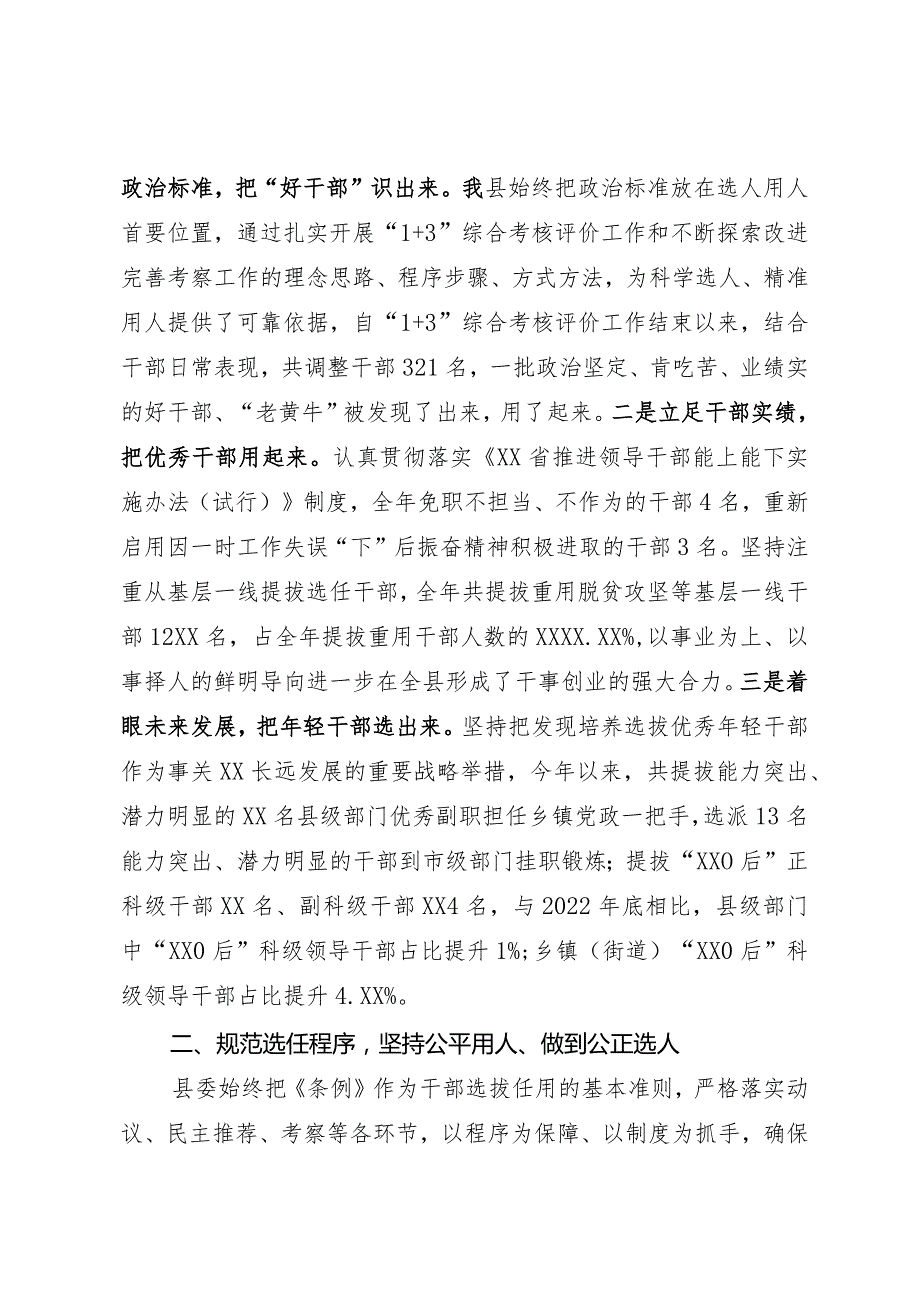 政治标准，把“好干部”识出来。我县始终把政治标准放在选人用人
首要位置，通过扎实开展“1+3”综合考核评价工作和不断探索改进
完善考察工作的理念思路、程序步骤、方式方法，为科学选人、精准
用人提供了可靠依据，自“1+3”综合考核评价工作结束以来，结合
干部日常表现，共调整干部 321 名，一批政治坚定、肯吃苦、业绩实
的好干部、“老黄牛”被发现了出来，用了起来。二是立足干部实绩，
把优秀干部用起来。认真贯彻落实《XX 省推进领导干部能上能下实
施办法（试行）》制度，全年免职不担当、不作为的干部 4 名，重新
启用因一时工作失误“下”后振奋精神积极进取的干部 3 名。坚持注
重从基层一线提拔选任干部，全年共提拔重用脱贫攻坚等基层一线干
部 12XX 名，占全年提拔重用干部人数的 XXXX.XX%,以事业为上、以
事择人的鲜明导向进一步在全县形成了干事创业的强大合力。三是着
眼未来发展，把年轻干部选出来。坚持把发现培养选拔优秀年轻干部
作为事关 XX 长远发展的重要战略举措，今年以来，共提拔能力突出、
潜力明显的 XX 名县级部门优秀副职担任乡镇党政一把手,选派 13 名
能力突出、潜力明显的干部到市级部门挂职锻炼；提拔“XXO 后”正
科级干部 XX 名、副科级干部 XX4 名，与 2022 年底相比，县级部门
中“XXO 后”科级领导干部占比提升 1%;乡镇（街道）“XXO 后”科
级领导干部占比提升 4.XX%。
二、规范选任程序，坚持公平用人、做到公正选人
县委始终把《条例》作为干部选拔任用的基本准则，严格落实动
议、民主推荐、考察等各环节，以程序为保障、以制度为抓手，确保